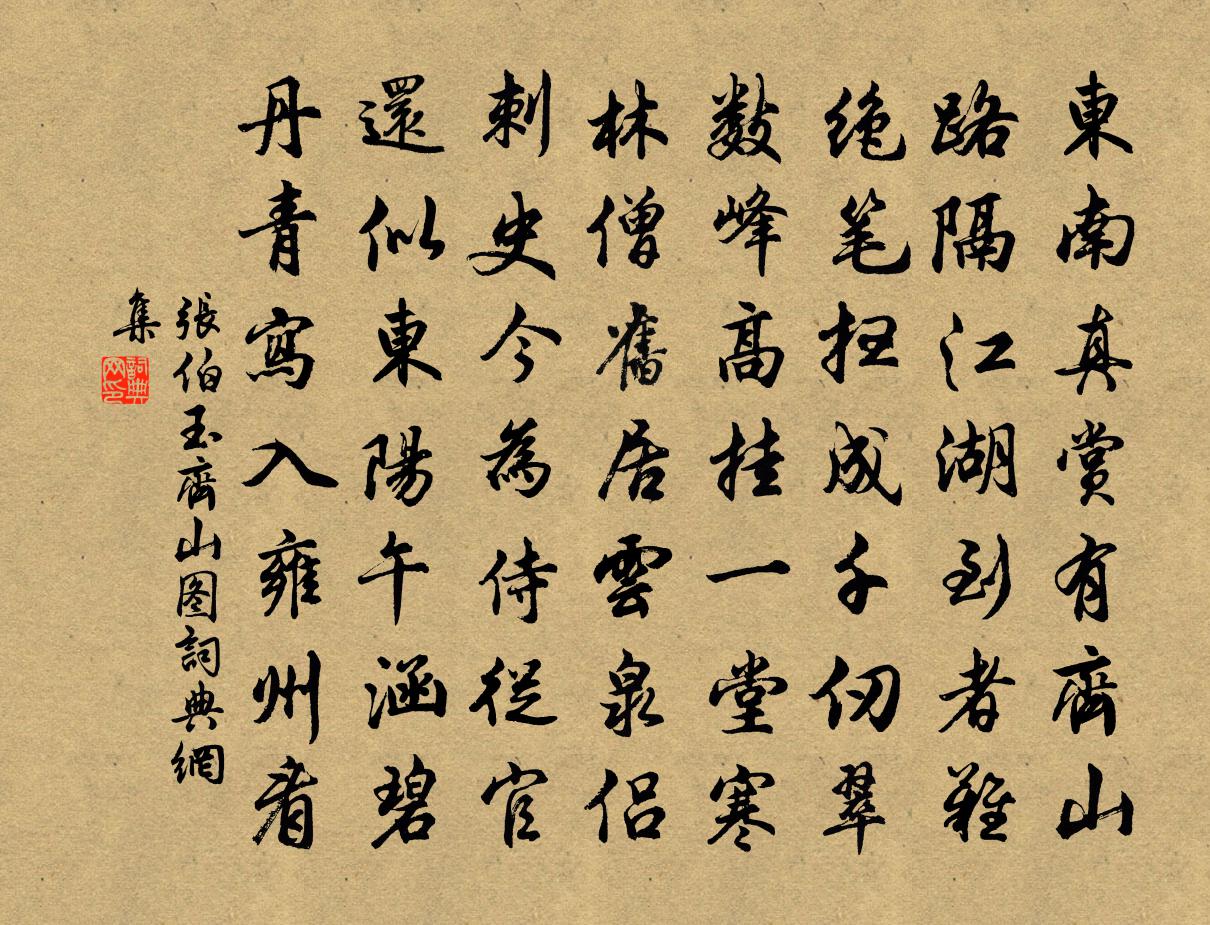 東南真賞有齊山
路隔江湖到者難
絶笔扫成千仞翠
數峰高挂一堂寒
林僧舊居雲泉侣
刺史今為侍從官
還似東陽午涵碧
丹青寫入雍州看
張伯玉齊山图詞典網
集
詞典网印